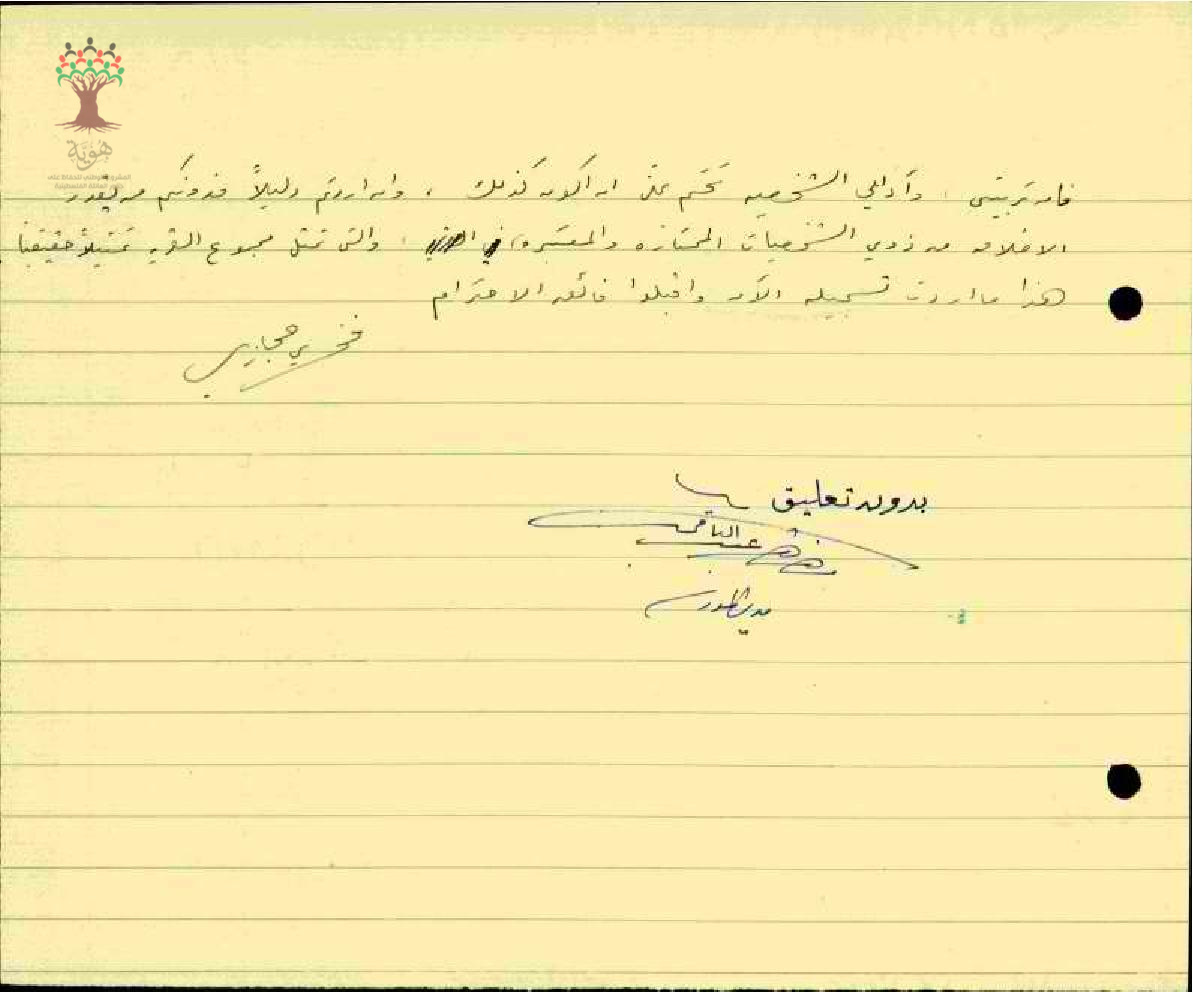 هوية
المشروع الوطني للحفاظ على
جذور العائلة الفلسطينية
فان تربيتي ، وآدابي الشخصيه تحتم علي ان اكون كذلك ، وان اردتم دليلاً فدونكم من يقدر
الاخلاق من ذوي الشخصيات الممتازه والمعتبره في ، والتي تمثل مجموع القريه تمثيلاً حقيقياً
هذا ما اردت تسجيله الآن واقبلوا فائق الاحترام
فخري حجازي
بدون تعليق
عبد
مدير